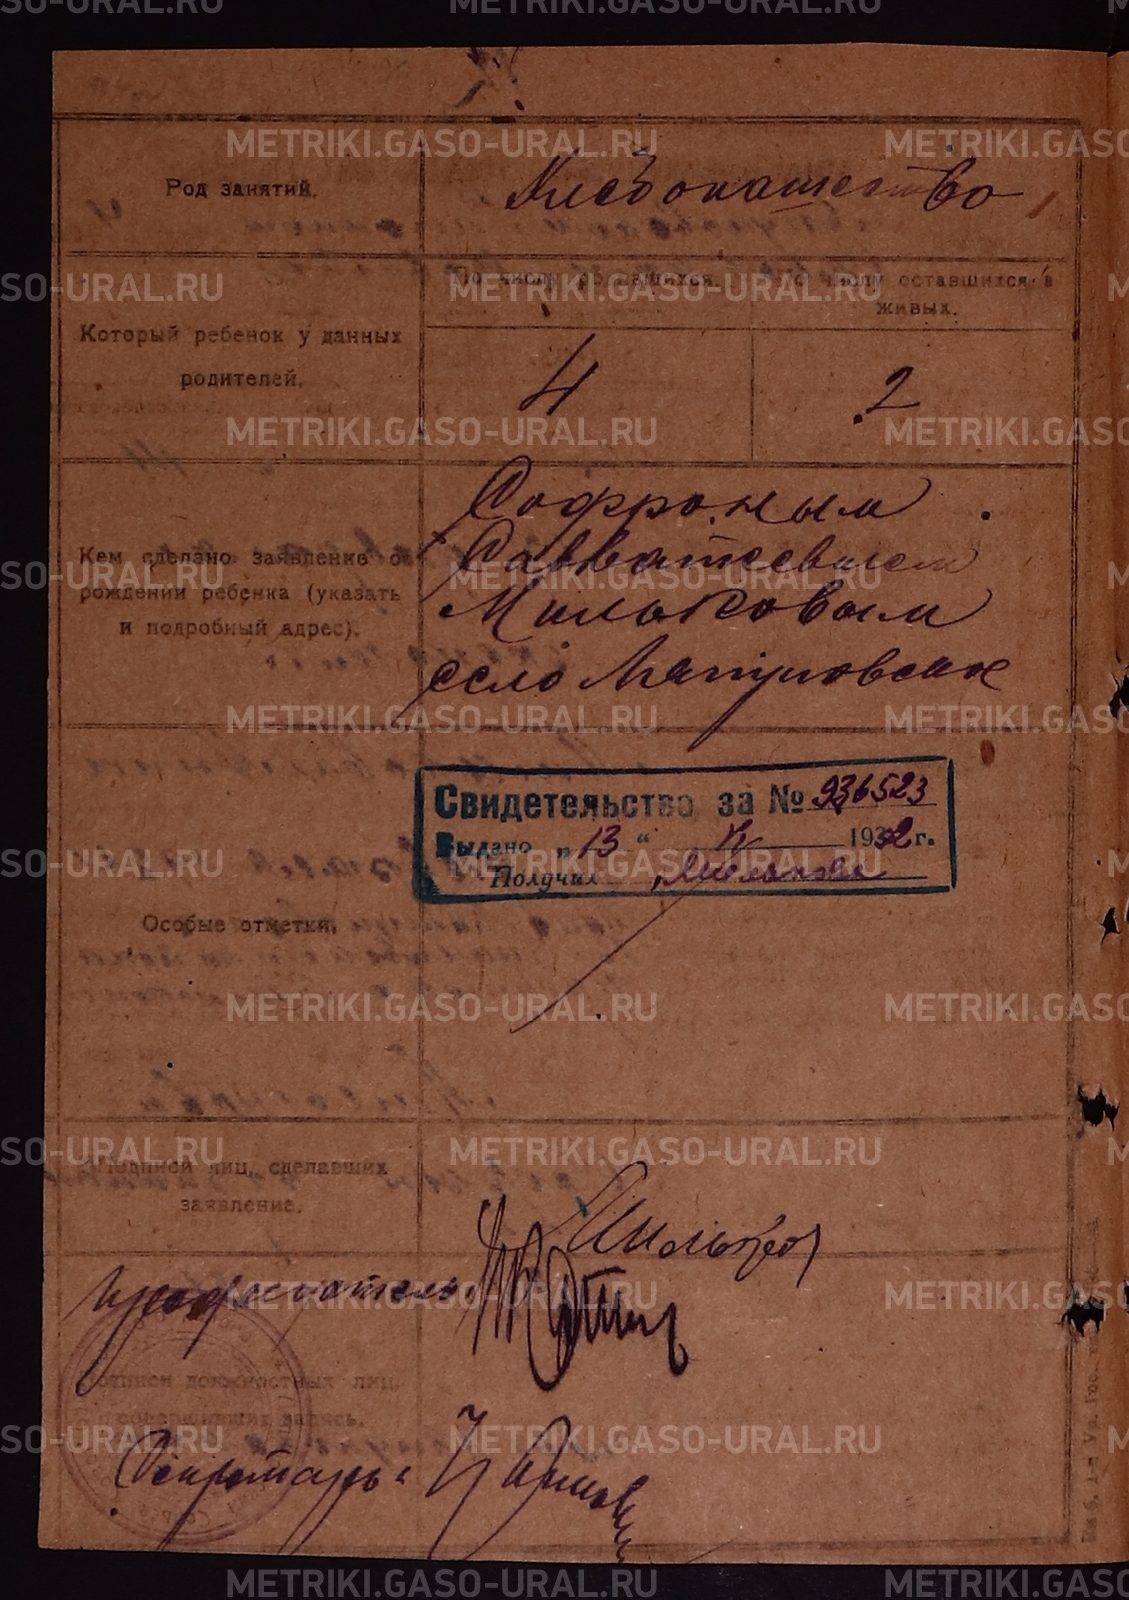 Род занятий.
Хлебопашество
Который ребенок у данных
родителей.
По числу родившихся.
По числу оставшихся в
живых.
4
2
Кем сделано заявление о
рождении ребенка (указать
и подробный адрес).
Софроным
Савватеевичем
Мильковым
село
Особые отметки.
Свидетельство за № 936523
Выдано „13“ 1932 г.
Получил
Подписи лиц, сделавших
заявление.
Мильков
Председатель
Подписи должностных лиц,
совершивших запись.
Секретарь
METRIKI.GASO-URAL.RU